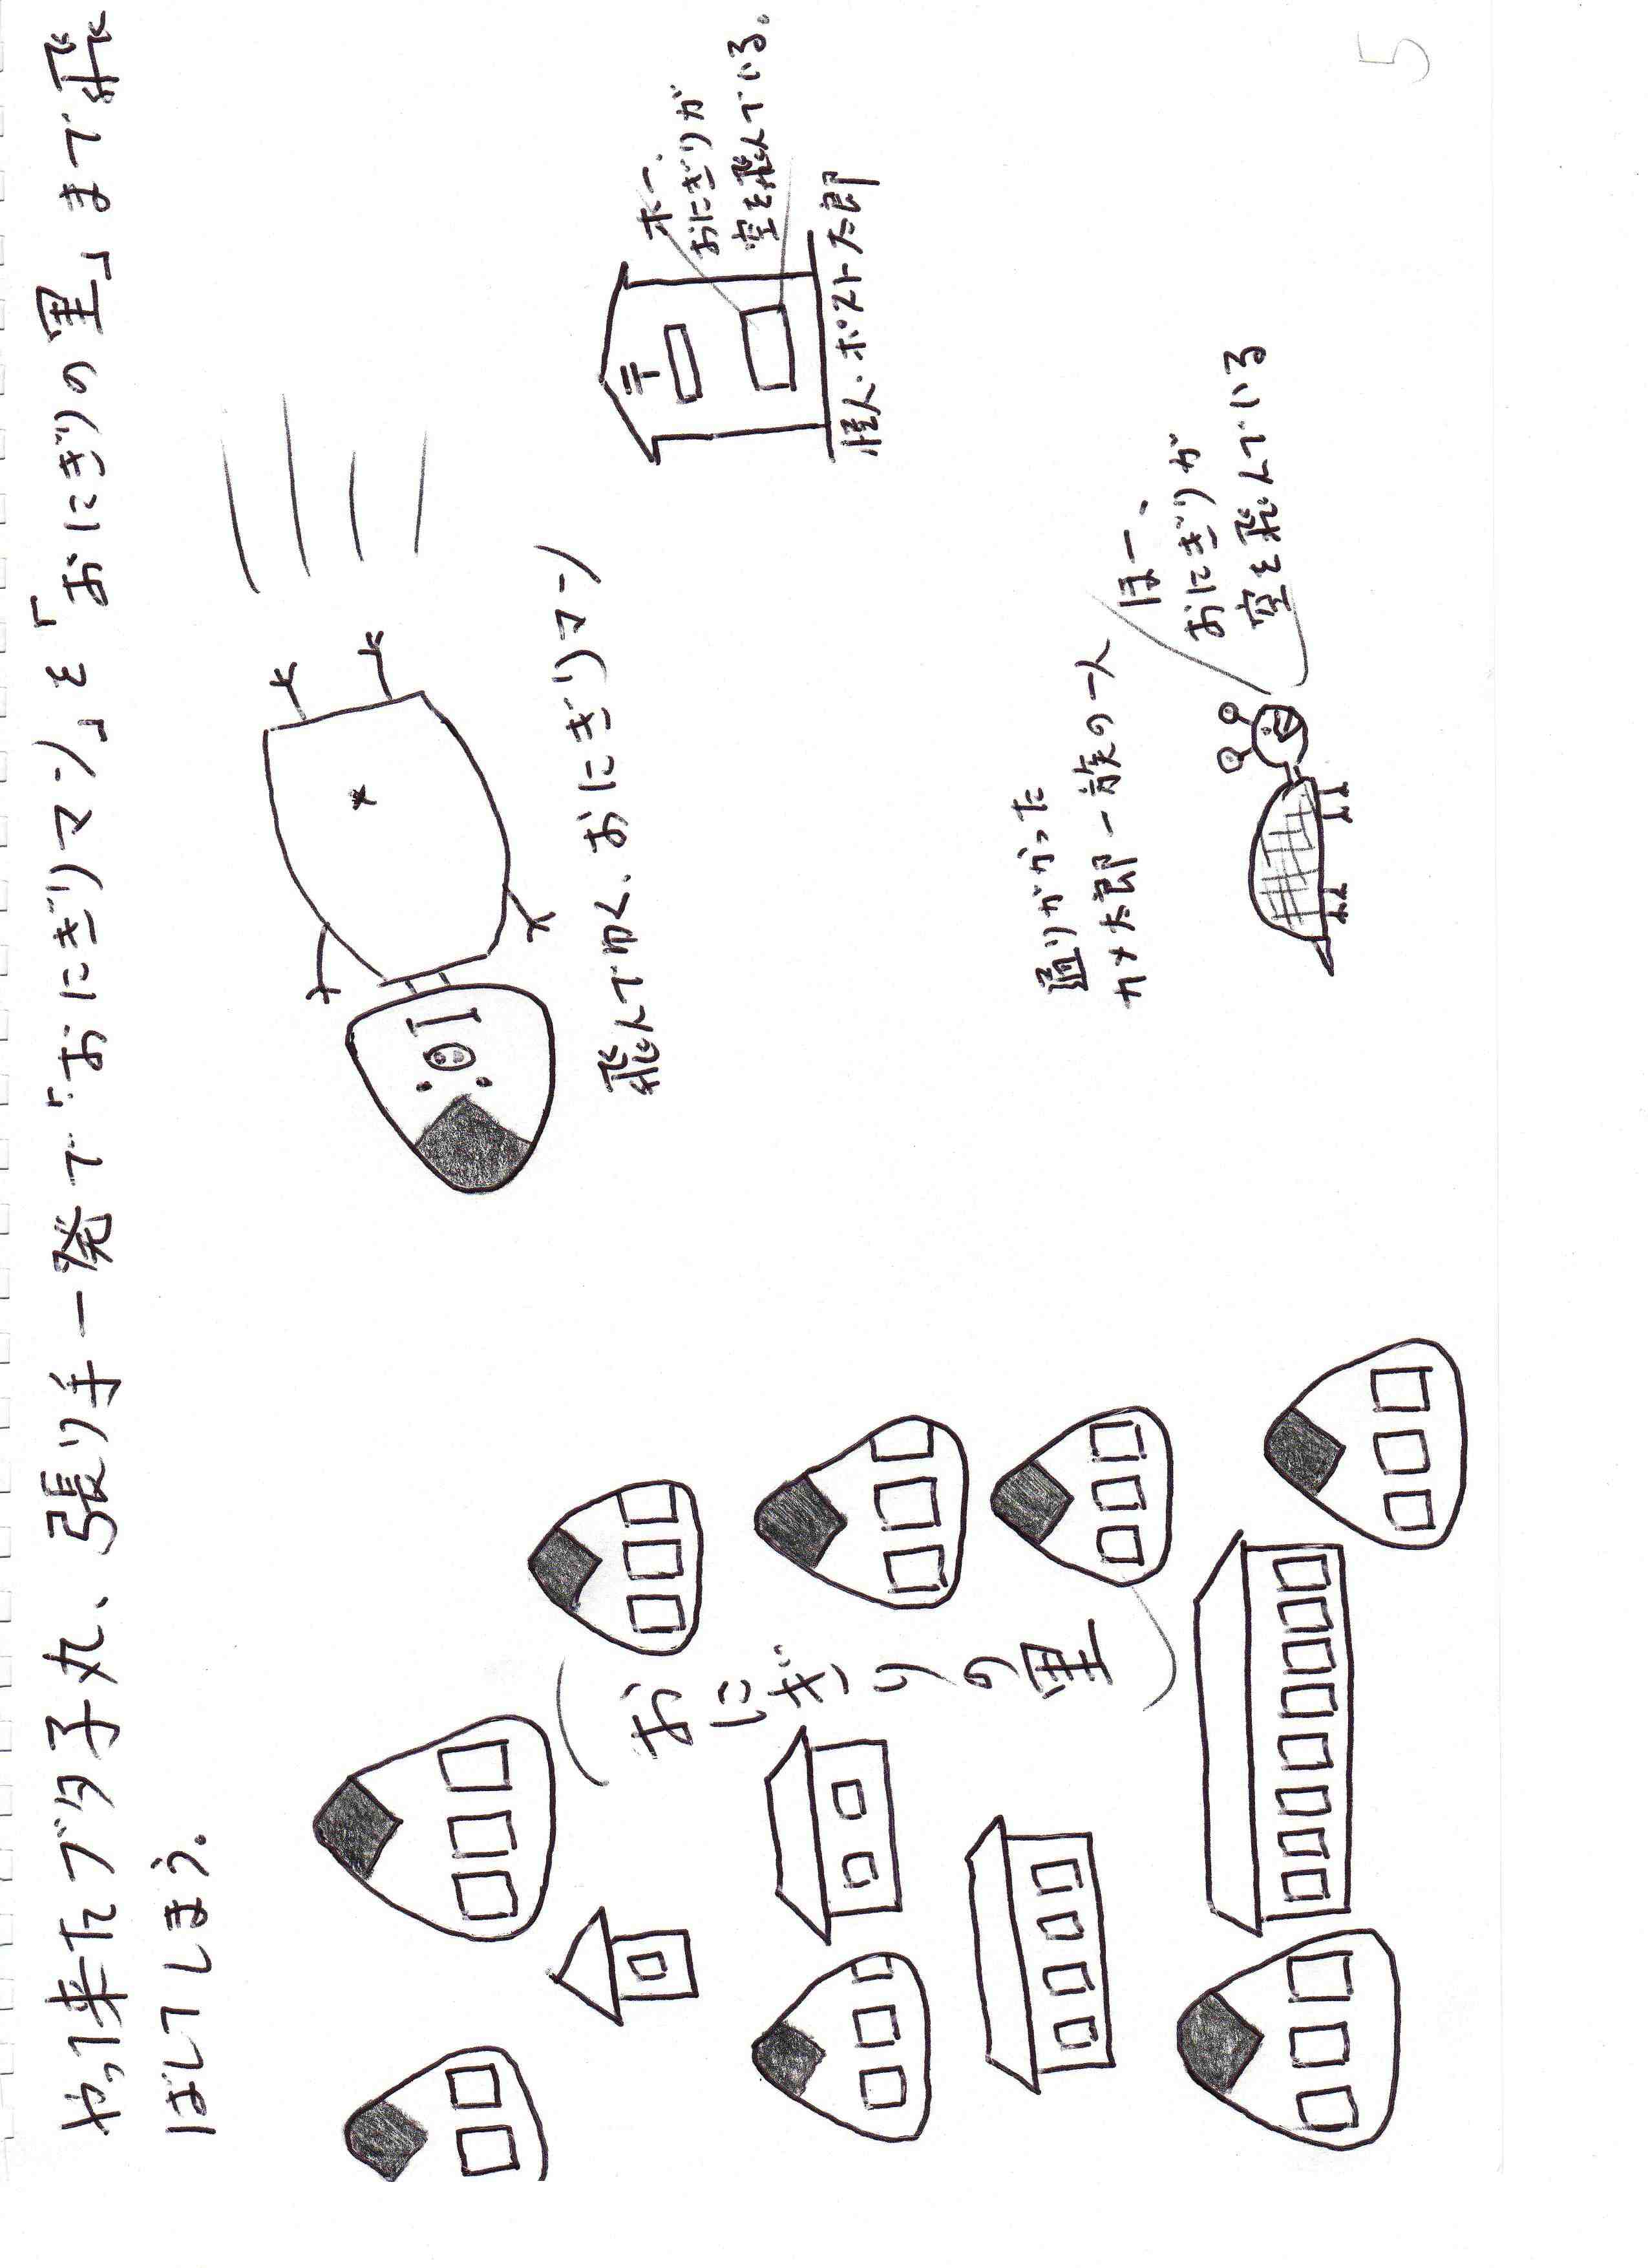 やって来たブタ子丸、張り手一発で「おにぎりマン」を「おにぎりの里」まで飛
ばしてしまう。
飛んでゆく、おにぎりマン
〒
ホー、
おにぎりが
空を飛んでいる。
怪人・ポスト太郎
おにぎりの里
通りがかった
カメ太郎一族の一人
ほー、
おにぎりが
空を飛んでいる
5